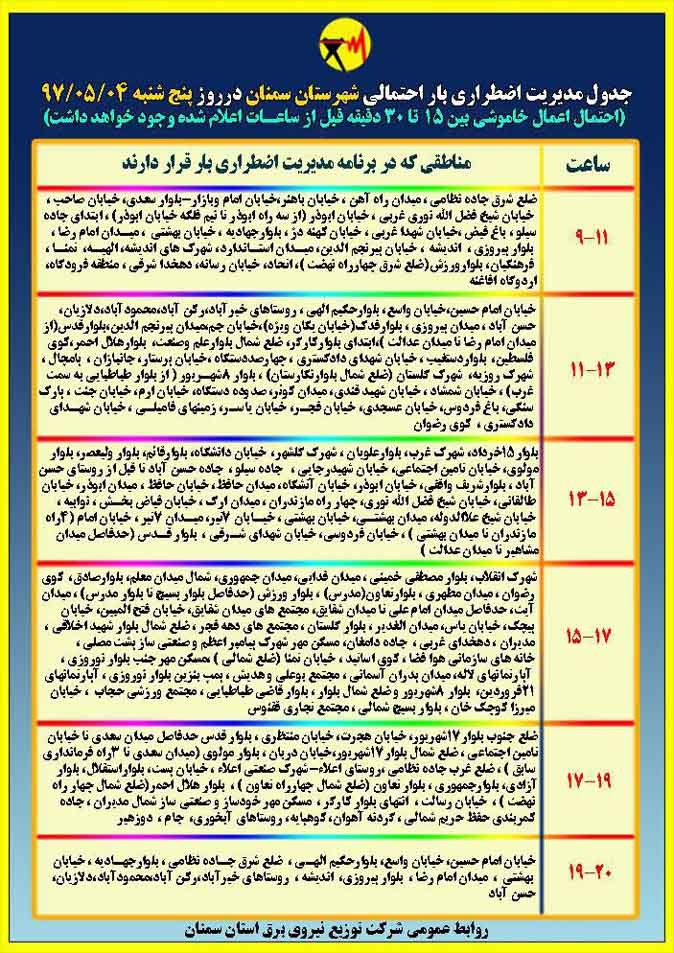 جدول مدیریت اضطراری بار احتمالی شهرستان سمنان درروز پنج شنبه ۹۷/۰۵/۰۴
(احتمال اعمال خاموشی بین ۱۵ تا ۳۰ دقیقه قبل از ساعات اعلام شده وجود خواهد داشت)
ساعت
مناطقی که در برنامه مدیریت اضطراری بار قرار دارند
۹-۱۱
ضلع شرق جاده نظامی ، میدان راه آهن ، خیابان باهنر،خیابان امام وبازار-بلوار سعدی، خیابان صاحب ،
خیابان شیخ فضل الله نوری غربی ، خیابان ابوذر (از سه راه ابوذر تا نیم فلکه خیابان ابوذر) ، ابتدای جاده
سیلو ، باغ فیض ،خیابان شهدا غربی ، خیابان کهنه دژ ، بلوارجهادیه ، خیابان بهشتی ، میدان امام رضا ،
بلوار پیروزی ، اندیشه ، خیابان پیرنجم الدین،میدان استاندارد، شهرک های اندیشه، الهیه، نمثا ،
فرهنگیان، بلوارورزش(ضلع شرق چهارراه نهضت )، اتحاد، خیابان رسانه، دهخدا شرقی ، منطقه فرودگاه،
اردوگاه افاغنه
۱۱-۱۳
خیابان امام حسین،خیابان واسع، بلوارحکیم الهی ، روستاهای خیرآباد،رکن آباد،محمودآباد،دلازیان،
حسن آباد ، میدان پیروزی ، بلوارفدک(خیابان یگان ویژه)،خیابان جم،میدان پیرنجم الدین،بلوارقدس(از
میدان امام رضا تا میدان عدالت )،ابتدای بلوارکارگر، ضلع شمال بلوارعلم وصنعت، بلوارهلال احمر،کوی
فلسطین، بلواردستغیب ، خیابان شهدای دادگستری ، چهارصددستگاه، خیابان پرستار، جانبازان ، بامچال ،
شهرک روزیه، شهرک گلستان (ضلع شمال بلوارنگارستان) ، بلوار ۸شهریور ( از بلوار طباطبایی به سمت
غرب) ، خیابان شمشاد ، خیابان شهید قندی،میدان کوثر،صدوده دستگاه، خیابان ارم، خیابان جنت ، پارک
سنگی، باغ فردوس، خیابان عسجدی ، خیابان فجر، خیابان یاسر، زمینهای فامیلی ، خیابان شهدای
دادگستری ، کوی رضوان
۱۳-۱۵
بلوار ۱۵خرداد، شهرک غرب، بلوارعلویان ، شهرک گلشهر، خیابان دانشگاه، بلوارقائم، بلوار ولیعصر، بلوار
مولوی، خیابان تامین اجتماعی، خیابان شهیدرجایی ، جاده سیلو ، جاده حسن آباد تا قبل از روستای حسن
آباد ، بلوارشریف واقفی، خیابان ابوذر، خیابان آتشگاه، میدان حافظ ، خیابان حافظ ، میدان ابوذر، خیابان
طالقانی، خیابان شیخ فضل الله نوری، چهار راه مازندران ، میدان ارک ، خیابان فیاض بخش ، توابیه ،
خیابان شیخ علاالدوله، میدان بهشتی، خیابان بهشتی ، خیابان ۷تیر، میدان ۷تیر، خیابان امام (۴راه
مازندران تا میدان بهشتی ) ، خیابان فردوسی، خیابان شهدای شرقی ، بلوار قدس (حدفاصل میدان
مشاهیر تا میدان عدالت )
۱۵-۱۷
شهرک انقلاب، بلوار مصطفی خمینی ، میدان فدایی، میدان جمهوری، شمال میدان معلم، بلوارصادق، کوی
رضوان ، میدان مطهری ، بلوارتعاون(مدرس) ، بلوار ورزش (حدفاصل بلوار بسیج تا بلوار مدرس) ، میدان
آیت، حدفاصل میدان امام علی تا میدان شقایق، مجتمع های میدان شقایق، خیابان فتح المبین، خیابان
پیچک، خیابان یاس، میدان الغدیر ، بلوار گلستان ، مجتمع های دهه فجر، ضلع شمال بلوار شهید اخلاقی ،
مدیران ، دهخدای غربی ، جاده دامغان، مسکن مهر شهرک پیامبر اعظم و صنعتی ساز پشت مصلی ،
خانه های سازمانی هوا فضا ، کوی اساتید ، خیابان نمثا (ضلع شمالی )،مسکن مهر جنب بلوار نوروزی ،
آپارتمانهای لاله، میدان پدران آسمانی ، مجتمع بوعلی وهدیش ، پمپ بنزین بلوار نوروزی ، آپارتمانهای
۲۱فروردین، بلوار ۸شهریور و ضلع شمال بلوار ، بلوار قاضی طباطبایی ، مجتمع ورزشی حجاب ، خیابان
میرزا کوچک خان ، بلوار بسیج شمالی ، مجتمع تجاری ققنوس
۱۷-۱۹
ضلع جنوب بلوار ۱۷شهریور، خیابان هجرت، خیابان منتظری ، بلوار قدس حدفاصل میدان سعدی تا خیابان
تامین اجتماعی ، ضلع شمال بلوار ۱۷شهریور،خیابان دربان ، بلوار مولوی (میدان سعدی تا ۳راه فرمانداری
سابق ) ، ضلع غرب جاده نظامی ،روستای اعلاء-شهرک صنعتی اعلاء ، خیابان پست، بلواراستقلال، بلوار
آزادی، بلوارجمهوری ، بلوار تعاون (ضلع شمال چهارراه تعاون ) ، بلوار هلال احمر(ضلع شمال چهار راه
نهضت ) ، خیابان رسالت ، انتهای بلوار کارگر ، مسکن مهر خودساز و صنعتی ساز شمال مدیران ، جاده
کمربندی حفظ حریم شمالی ، گردنه آهوان، کوهپایه، روستاهای آبخوری، جام ، دوزهیر
۱۹-۲۰
خیابان امام حسین، خیابان واسع، بلوارحکیم الهی ، ضلع شرق جاده نظامی ، بلوارجهادیه ، خیابان
بهشتی ، میدان امام رضا ، بلوار پیروزی، اندیشه ، روستاهای خیرآباد،رکن آباد،محمودآباد،دلازیان،
حسن آباد
روابط عمومی شرکت توزیع نیروی برق استان سمنان